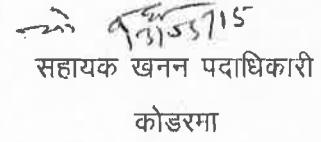 सहायक खनन पदाधिकारी
कोडरमा